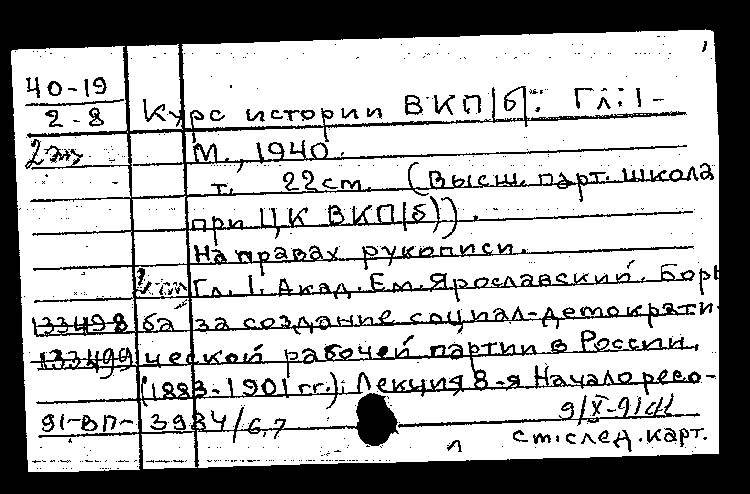 40-19
2-8 Курс истории ВКП/б/: Гл. 1-
2 эк М., 1940.
т. 22 ст. (Высш. парт. школа
при ЦК ВКП/б/).
На правах рукописи.
Гл. 1. Акад. Ем. Ярославский. Борь
133498 ба за создание социал-демократи-
133499 ческой рабочей партии в России.
(1883-1901 гг.): Лекция 8-я Начало рево-
91-ВП-3984/6,7 9/X-91
л см. след. карт.